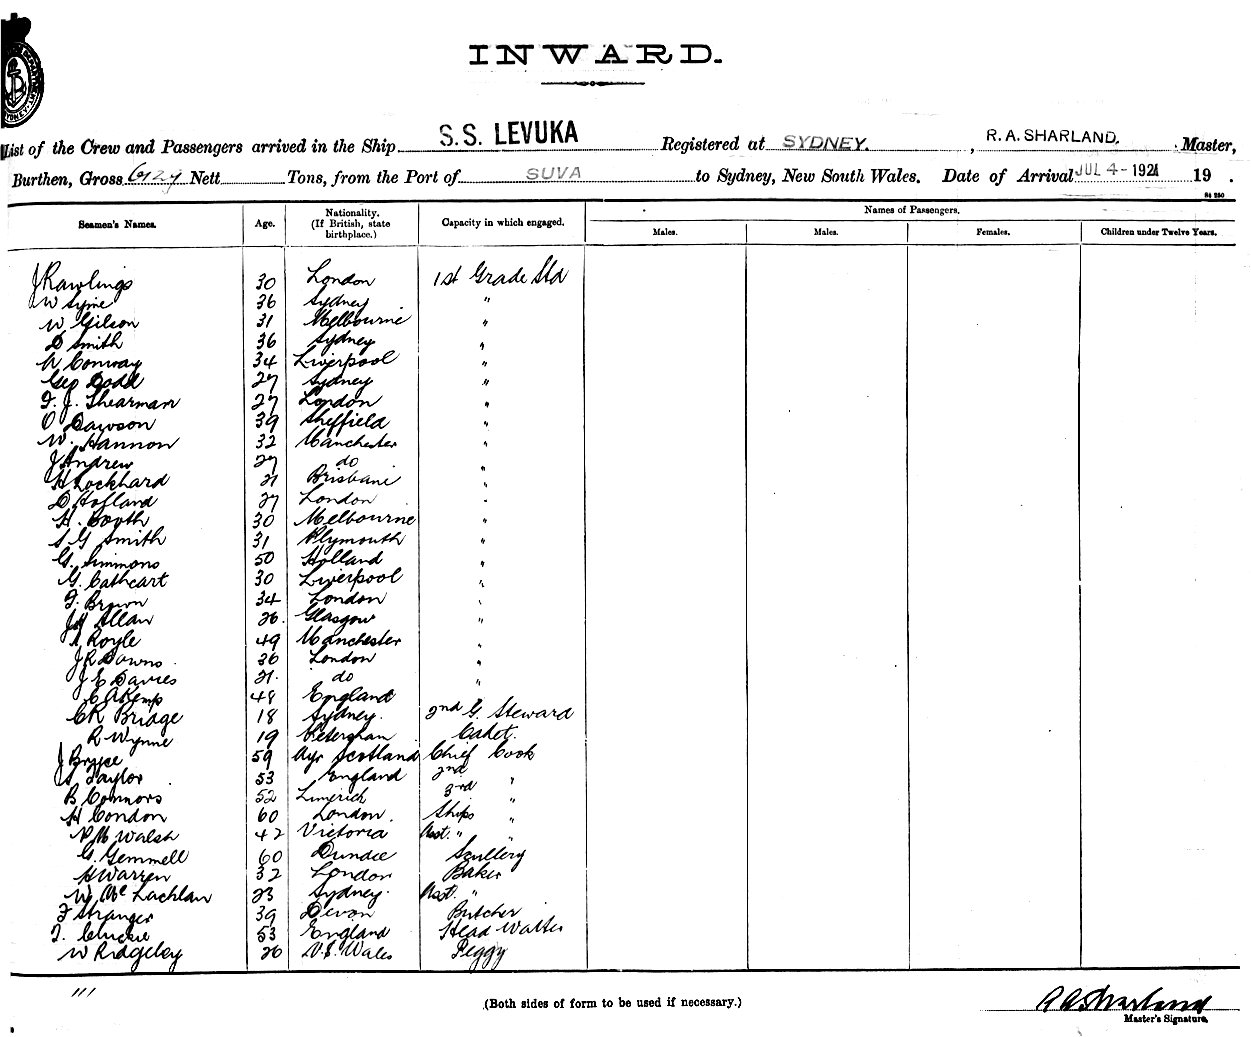 INWARD.
List of the Crew and Passengers arrived in the Ship S.S. LEVUKA Registered at SYDNEY. , R. A. SHARLAND. Master,
Burthen, Gross 6129 Nett Tons, from the Port of SUVA to Sydney, New South Wales. Date of Arrival JUL 4 - 1921 19 .
Seamen's Names. Age. Nationality. (If British, state birthplace.) Capacity in which engaged. Names of Passengers.
Males. Males. Females. Children under Twelve Years.
J Rawlings 30 London 1st Grade Std
W Syme 36 Sydney "
W Gilson 31 Melbourne "
D Smith 36 Sydney "
W Conway 34 Liverpool "
Geo Dodd 27 Sydney "
F. J. Shearman 27 London "
O Dawson 39 Sheffield "
W. Hannon 32 Manchester "
J Andrew 27 do "
H Lockhard 21 Brisbane "
D Holland 27 London "
H. Booth 30 Melbourne "
S G Smith 31 Plymouth "
G. Simmons 50 Holland "
G. Cathcart 30 Liverpool "
F. Brown 34 London "
Allan 26. Glasgow "
Royle 49 Manchester "
J R Downs 36 London "
J E Davies 21. do "
C A Kemp 48 England
C R Bridge 18 Sydney. 2nd G. Steward
R Wynne 19 Cadet.
J Bryce 59 Ayr Scotland Chief Cook
Taylor 53 England 2nd "
B Connors 52 Limerick 3rd "
H Condon 60 London. Ships "
Walsh 42 Victoria Asst. " "
G. Gemmell 60 Dundee Scullery
H Warren 32 London Baker
W Mc Lachlan 23 Sydney. Asst. "
F Stranger 39 Devon Butcher
T. 53 England Head Waiter
W Ridgeley 26 N.S. Wales Peggy
(Both sides of form to be used if necessary.)
R A Sharland
Master's Signature.